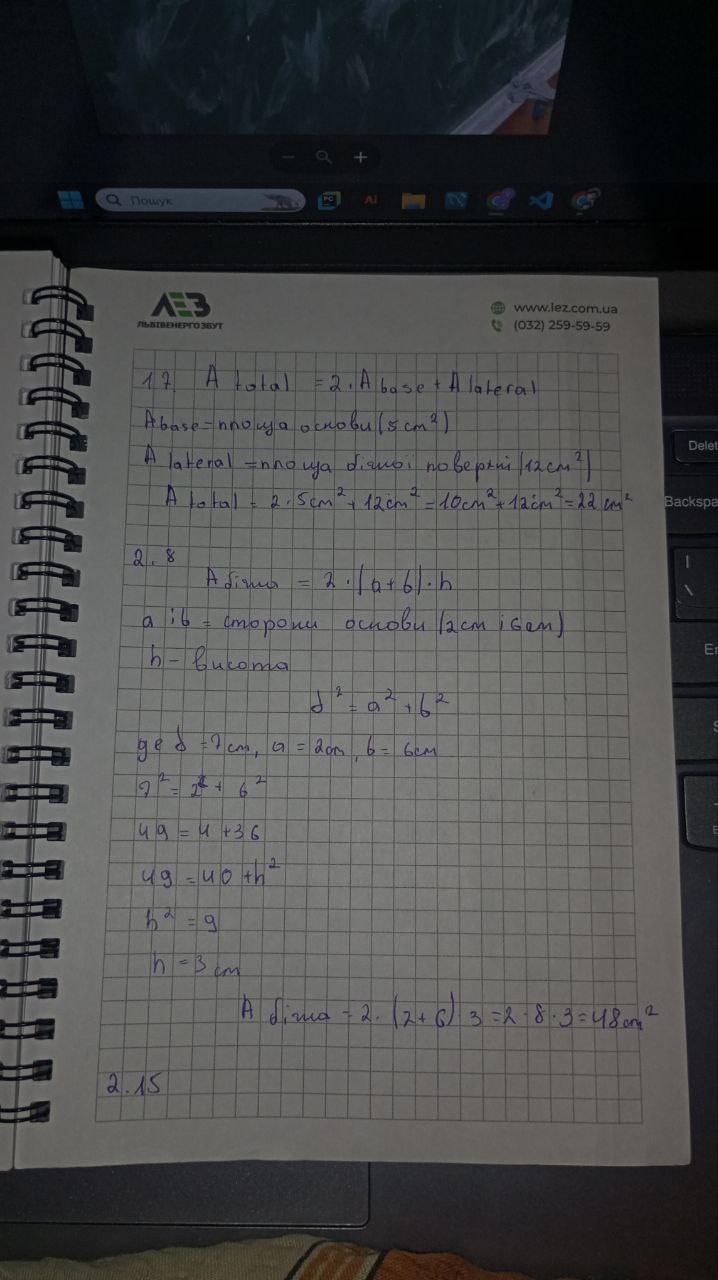 Пошук
PC
Ai
ЛЕЗ
ЛЬВІВЕНЕРГОЗБУТ
www.lez.com.ua
(032) 259-59-59
1.7. A total = 2 . A base + A lateral
A base = площа основи (5 cm²)
A lateral = площа бічної поверхні (12cm²)
A total = 2 · 5cm² + 12cm² = 10cm² + 12cm² = 22 cm²
2.8
A бічна = 2 · (a+b) · h
a і b = сторони основи (2cm і 6cm)
h - висота
d² = a² + b²
де d = 7cm, a = 2cm, b = 6cm
7² = 2² + 6²
49 = 4 + 36
49 = 40 + h²
h² = 9
h = 3 cm
A бічна = 2 · (2+6) 3 = 2 · 8 · 3 = 48cm²
2.15
Delet
Backspa
\
En